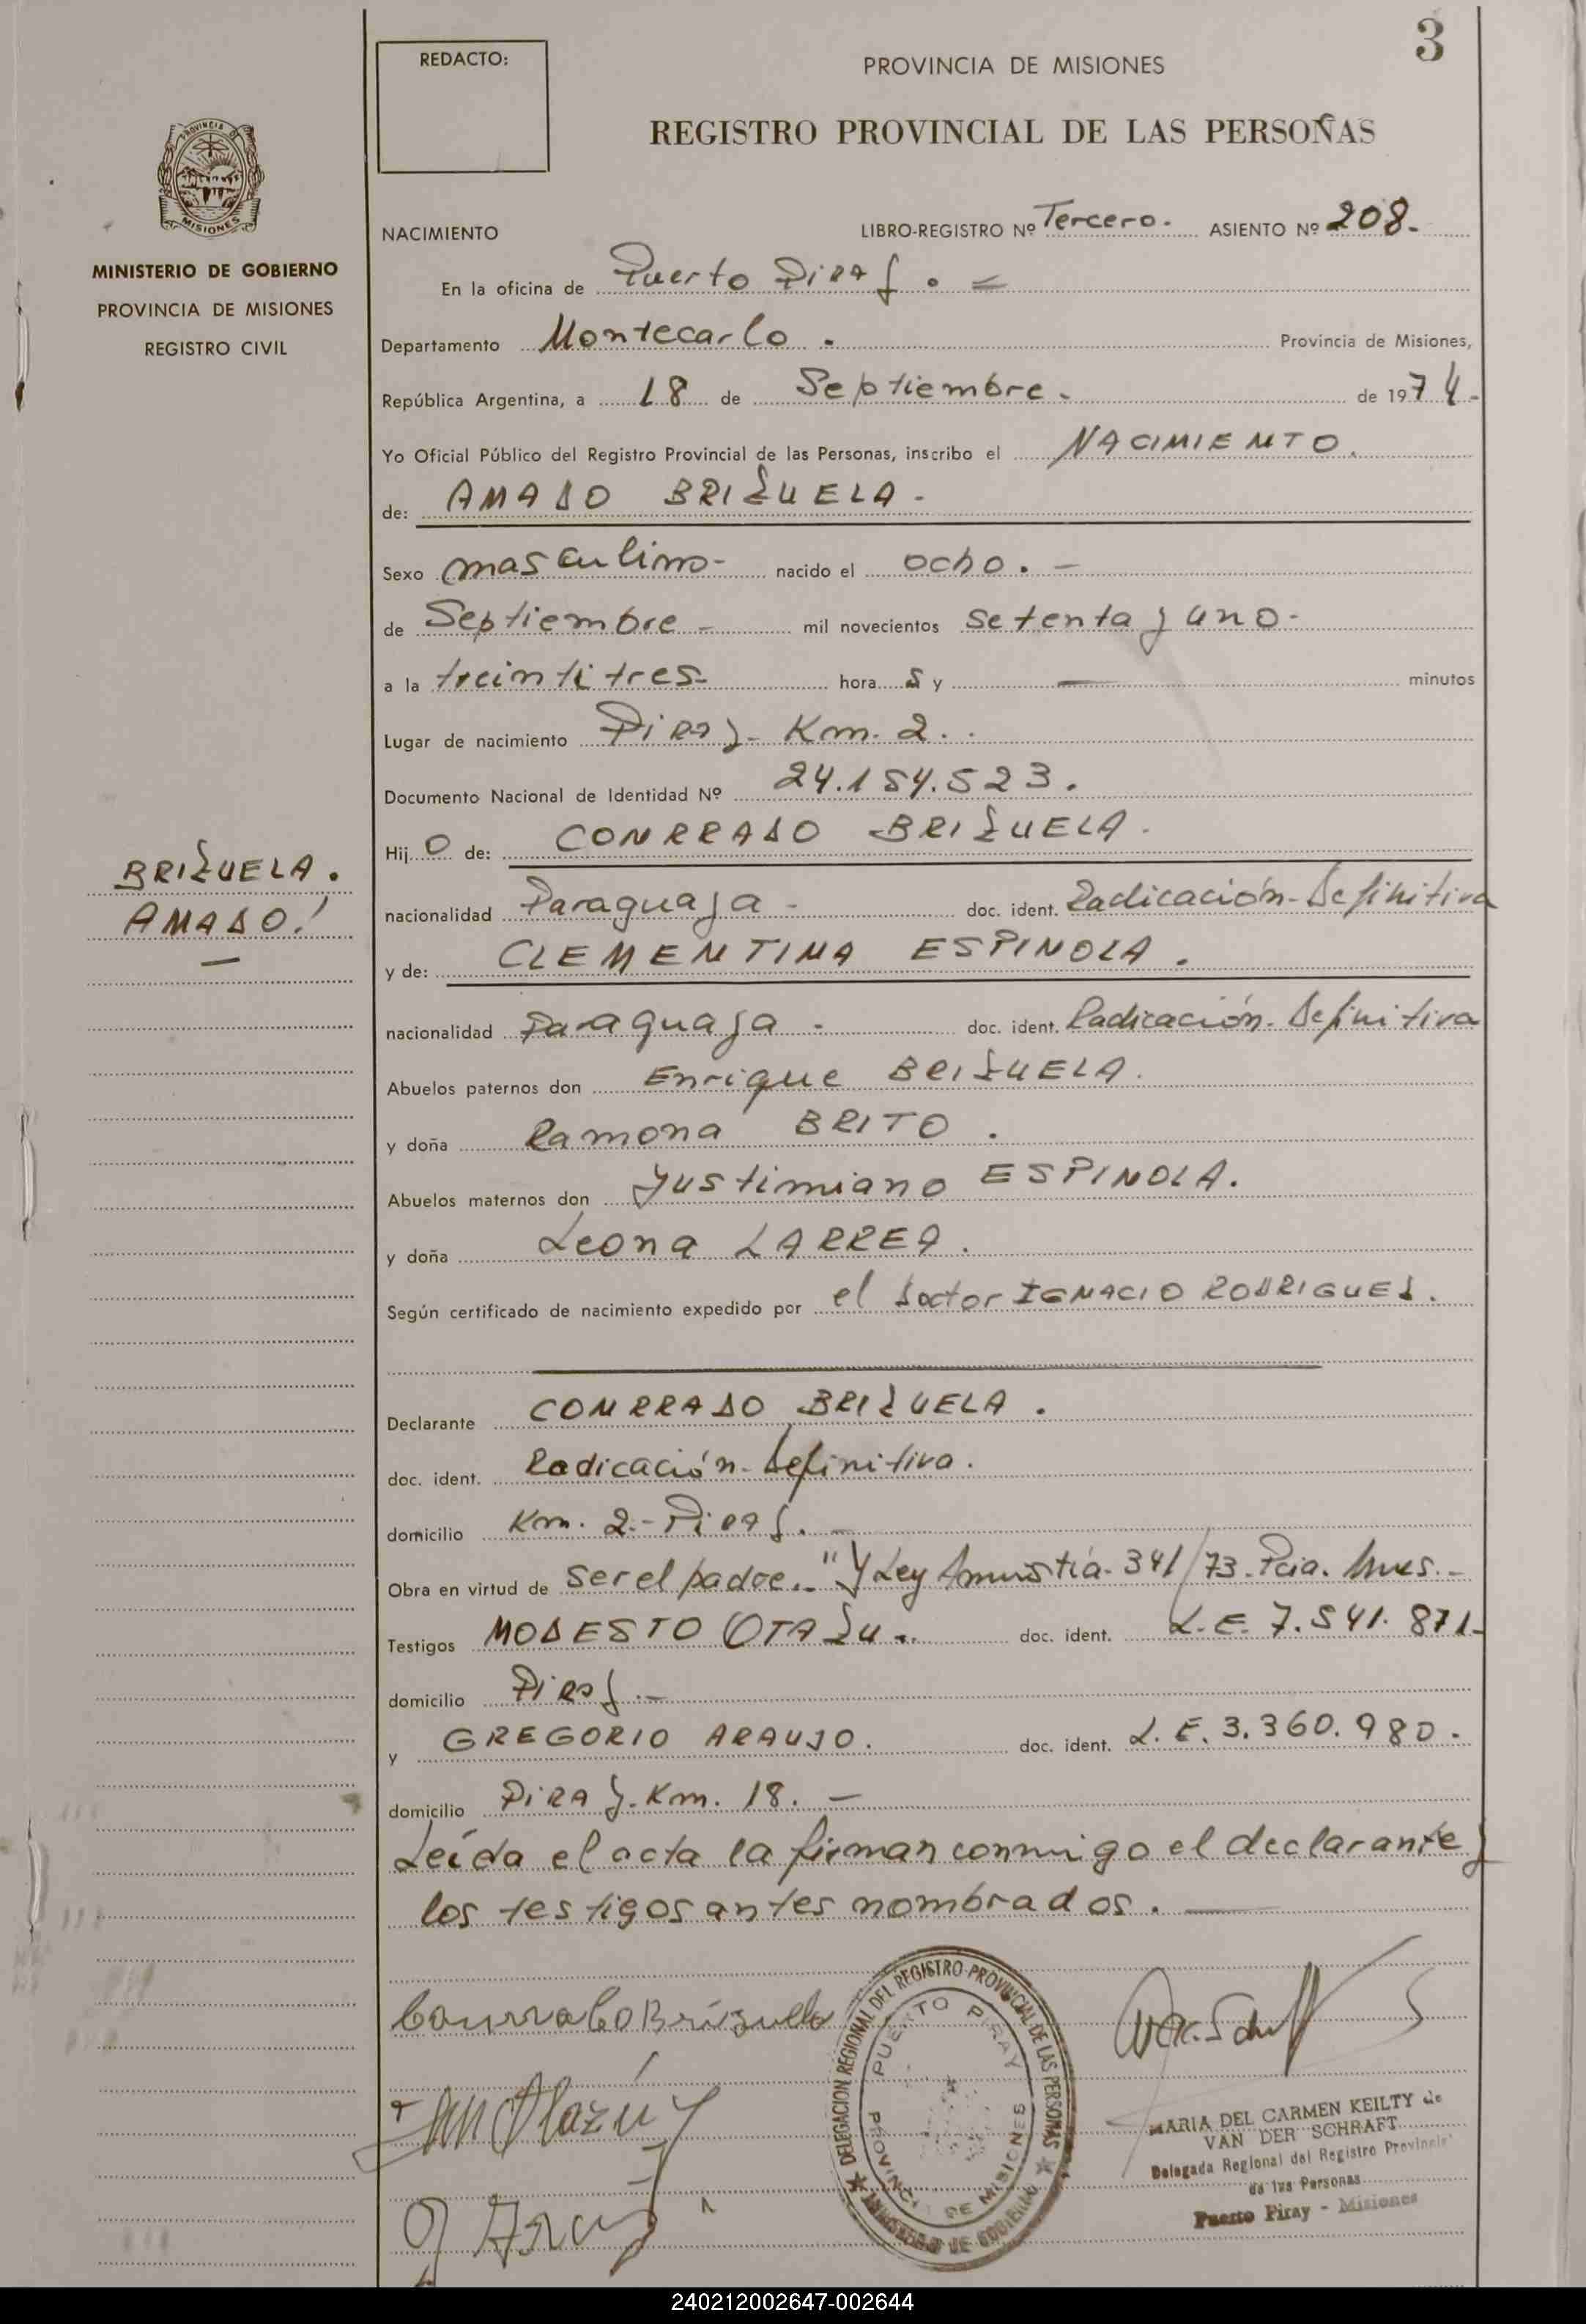 3
REDACTO:
PROVINCIA DE MISIONES
REGISTRO PROVINCIAL DE LAS PERSONAS
PROVINCIA DE
MISIONES
MINISTERIO DE GOBIERNO
PROVINCIA DE MISIONES
REGISTRO CIVIL
NACIMIENTO LIBRO-REGISTRO Nº Tercero.- ASIENTO Nº 208.-
En la oficina de Puerto Piray . =
Departamento Montecarlo . Provincia de Misiones,
República Argentina, a 18 de Septiembre.- de 1974.-
Yo Oficial Público del Registro Provincial de las Personas, inscribo el NACIMIENTO.
de: AMADO BRIZUELA.-
Sexo masculino- nacido el ocho. -
de Septiembre - mil novecientos setenta y uno-
a la treinti tres- hora s y — minutos
Lugar de nacimiento Piray- Km. 2. .
Documento Nacional de Identidad Nº 24.154.523.
Hij o de: CONRRADO BRIZUELA.
BRIZUELA.
AMADO!
—
nacionalidad Paraguaya - doc. ident. Radicación-Definitiva
y de: CLEMENTINA ESPINOLA .
nacionalidad Paraguaya - doc. ident. Radicación-Definitiva
Abuelos paternos don Enrique BRIZUELA.
y doña Ramona BRITO .
Abuelos maternos don Justiniano ESPINOLA.
y doña Leona LARREA.
Según certificado de nacimiento expedido por el Doctor IGNACIO RODRIGUEZ.
Declarante CONRRADO BRIZUELA .
doc. ident. Radicación-Definitiva.
domicilio Km. 2.-Piray. -
Obra en virtud de ser el padre.-"y Ley Amnistía-341/73-Pcia. Mnes.-
Testigos MODESTO OTAZU .. doc. ident. L.E. 7.541.871-
domicilio Piray.-
y GREGORIO ARAUJO. doc. ident. L.E. 3.360.980.
domicilio PIRAY-Km. 18. -
Leída el acta la firman conmigo el declarante y
los testigos antes nombrados. —
Conrrado Brizuela
Otazú
DELEGACION REGIONAL DEL REGISTRO PROVINCIAL DE LAS PERSONAS
PUERTO PIRAY
PROVINCIA DE MISIONES
MINISTERIO DE GOBIERNO
MARIA DEL CARMEN KEILTY de
VAN DER SCHRAFT
Delegada Regional del Registro Provincial
de las Personas
Puerto Piray - Misiones
240212002647-002644